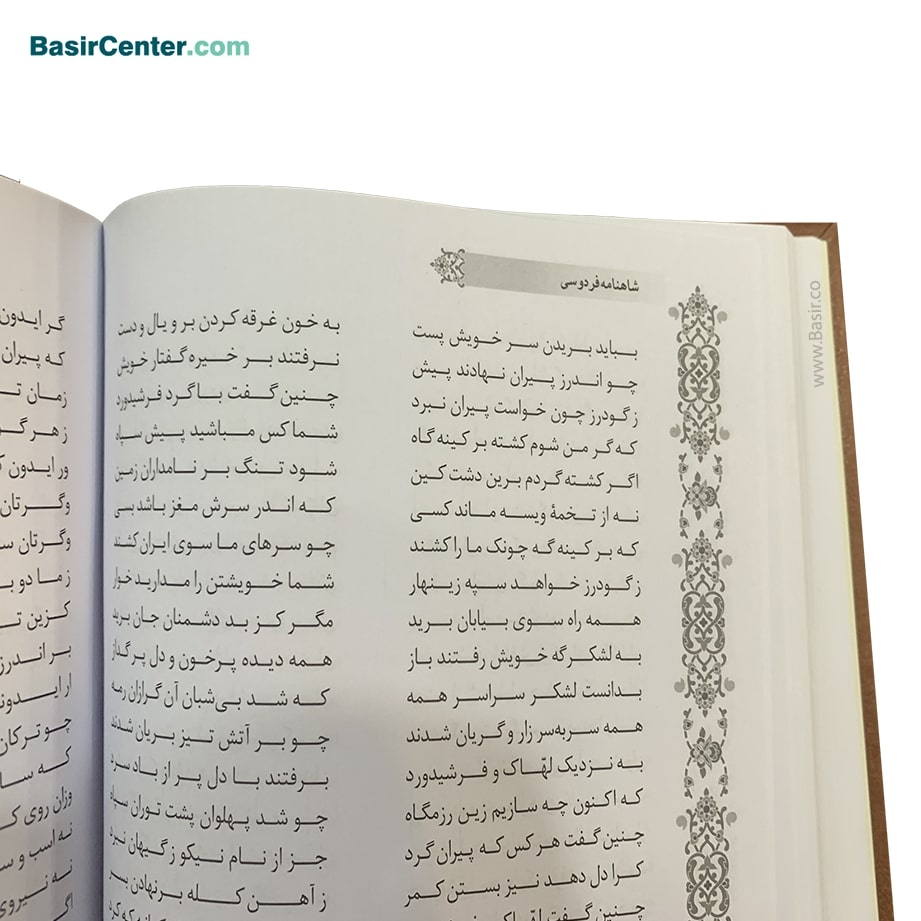 BasirCenter.com
www.Basir.co
شاهنامه فردوسی
بباید بریدن سر خویش پست به خون غرقه کردن بر و یال و دست
چو اندرز پیران نهادند پیش نرفتند بر خیره گفتار خویش
ز گودرز چون خواست پیران نبرد چنین گفت با گرد فرشیدورد
که گر من شوم کشته بر کینه گاه شما کس مباشید پیش سپاه
اگر کشته گردم برین دشت کین شود تنگ بر نامداران زمین
نه از تخمهٔ ویسه ماند کسی که اندر سرش مغز باشد بسی
که بر کینه گه چونک ما را کشند چو سرهای ما سوی ایران کشند
ز گودرز خواهد سپه زینهار شما خویشتن را مدارید خوار
همه راه سوی بیابان برید مگر کز بد دشمنان جان برید
به لشکر گه خویش رفتند باز همه دیده پرخون و دل پر گداز
بدانست لشکر سراسر همه که شد بی‌شبان آن گرازان رمه
همه سربه‌سر زار و گریان شدند چو بر آتش تیز بریان شدند
به نزدیک لهّاک و فرشیدورد برفتند با دل پر از باد سرد
که اکنون چه سازیم زین رزمگاه چو شد پهلوان پشت توران سپاه
چنین گفت هر کس که پیران گرد جز از نام نیکو ز گیهان نبرد
کرا دل دهد نیز بستن کمر ز آهن کله برنهادن بسر
چنین گفت
گر ایدون
که پیران
زمان
ز هر
ور ایدون
وگرتان
وگرتان
ز ما دو
کزین
بر اندرز
ار
چو ترکان
که
وزان روی
نه اسب و
نه نیروی